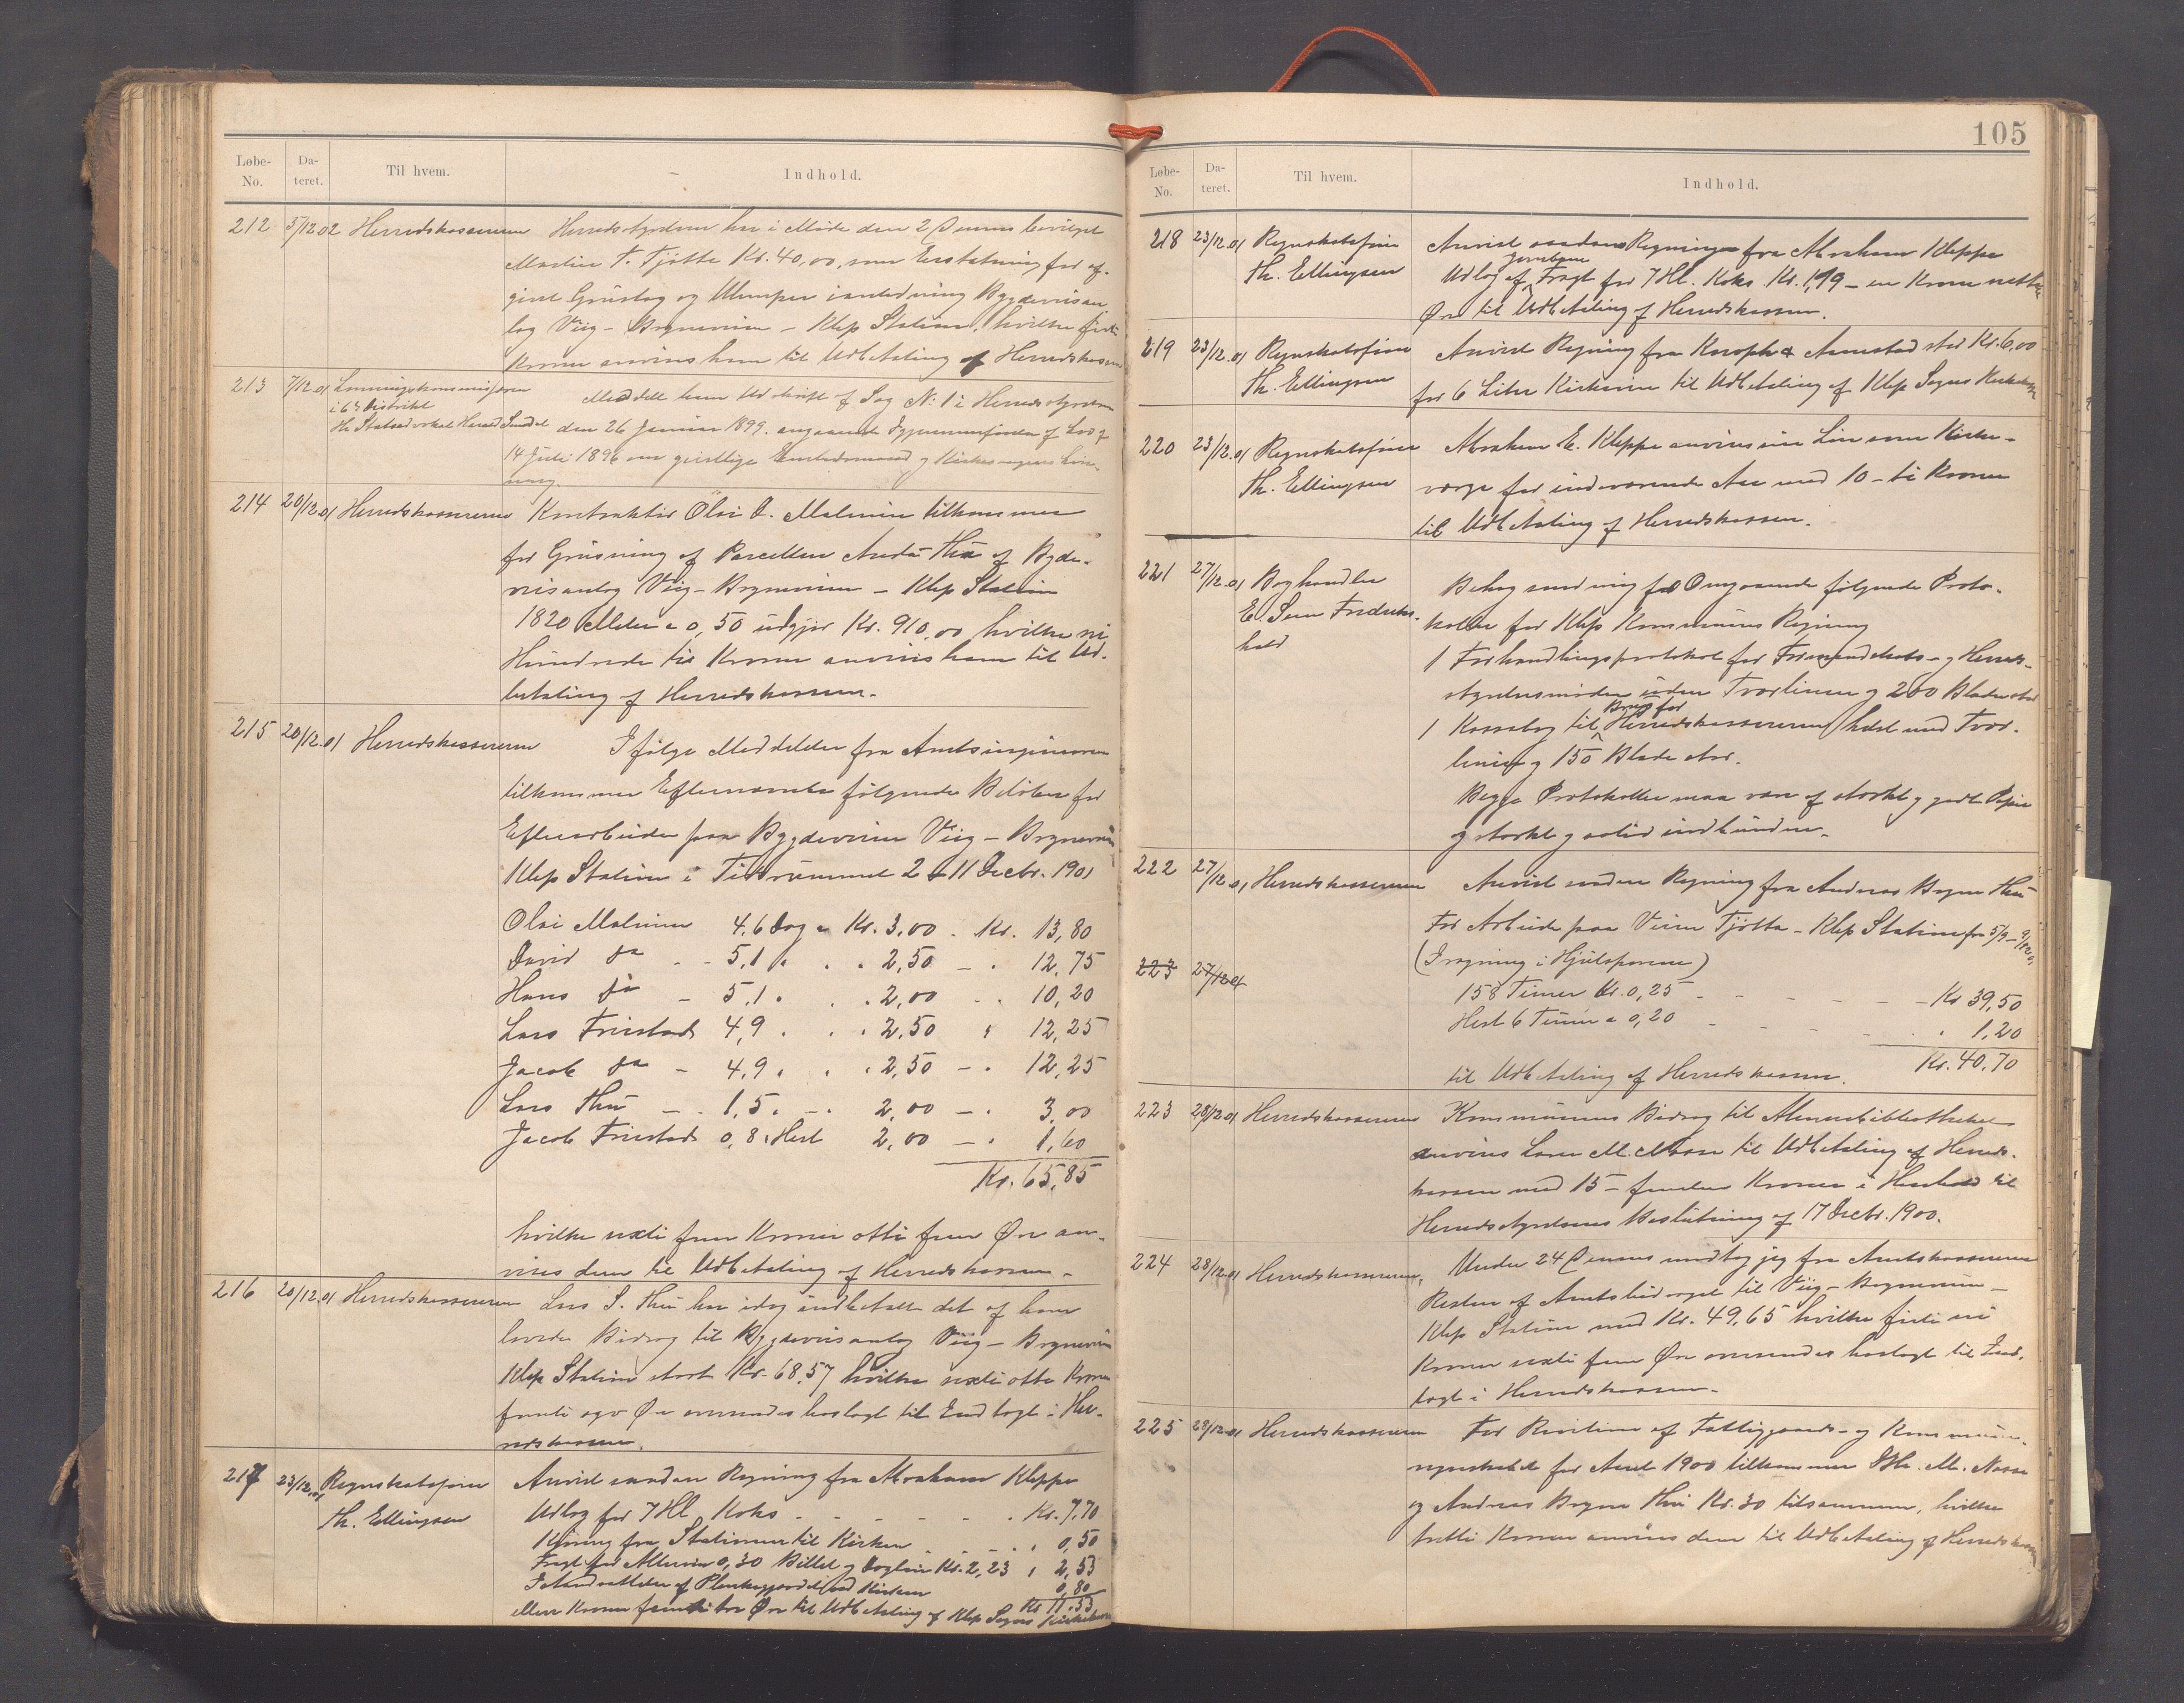 Løbe-No. Da-teret. Til hvem. Indhold.
212 5/12 02 Herredskassereren Herredsstyrelsen har i Møde den 2 Dennes bevilget
Martin T. Tjøtta Kr. 40,00, som Erstatning for af-
givet Grustag og Ulemper i anledning Bygdeveisan
læg Viig - Bryneveien - Klep Station, hvilke firti
Kroner anvises ham til Udbetaling af Herredskassen
213 7/12.01 Lønningskommissjonen
i 6te Distrikt
Hr. Statsadvokat Harald Smedal
Meddelt ham Udskrift af Sag No: 1 i Herredsstyrelsen
den 26 Januar 1899. angaaende Igjennemførelsen af Lov af
14 Juli 1896 om geistlige Embedsmænd og Kirkesangeres Løn-
ning.
214 20/12.01 Herredskassereren Kontraktør Olai D. Malmin tilkommer
for Grusning af Parcellen Aarda - Thu af Bygde-
veisanlæg Viig - Bryneveien - Klep Station
1820 Meter a 0,50 udgjør Kr. 910,00 hvilke ni
Hundrede ti Kroner anvises ham til Ud-
betaling af Herredskassen.
215 20/12.01 Herredskassereren Ifølge Meddelelse fra Amtsingeniøren
tilkommer Efternævnte følgende Beløber for
Efterarbeider paa Bygdeveien Viig - Bryneveien
Klep Station i Tidsrummet 2 - 11 Decbr. 1901
Olai Malmin 4,6 Dag a Kr. 3,00 - Kr. 13,80
David do - - 5,1 " . . 2,50 - . 12,75
Hans do - 5,1 . . . 2,00 . . 10,20
Lars Friestad 4,9 . . . 2,50 " 12,25
Jacob do - 4,9 . . . 2,50 - . 12,25
Lars Thu - . 1,5 . - . 2,00 - . 3,00
Jacob Friestad 0,8 . Hest 2,00 - . 1,60
Kr. 65,85
hvilke sexti fem Kroner otti fem Øre an-
vises dem til Udbetaling af Herredskassen -
216 20/12.01 Herredskassereren Lars S. Thu har idag indbetalt det af ham
lovede Bidrag til Bygdeveisanlæg Viig - Bryneveien
Klep Station stort Kr. 68,57 hvilke sexti otte Kroner
femti syv Øre oversendes hoslagt til Indtægt i Her-
redskassen.
217 23/12.01 Regnskabsfører
Th. Ellingsen
Anvist saadan Regning fra Abraham Kleppe
Udlæg for 7 Hl Koks - - - - - - . Kr. 7,70
Kjøring fra Stationen til Kirken . . - . . 0,50
Fragt for Altervin 0,30 Billet og Dagløn Kr. 2,23 " 2,53
Istandsættelse af Plankegjærdet ved Kirken 0,80
Kr 11.53
elleve Kroner femti tre Øre til Udbetaling af Klep Sogns Kirkekasse
105
Løbe-No. Da-teret. Til hvem. Indhold.
218 23/12.01 Regnskabsfører
Th. Ellingsen
Anvist saadan Regning fra Abraham Kleppe
Udlæg af Jernbane Fragt for 7 Hl. Koks Kr. 1,19 - en Krone nitten
Øre til Udbetaling af Herredskassen.
219 23/12.01 Regnskabsfører
Th. Ellingsen
Anvist Regning fra Knoph & Aanestad stor Kr. 6,00
for 6 Liter Kirkevin til Udbetaling af Klep Sogns Kirkekasse
220 23/12.01 Regnskabsfører
Th. Ellingsen
Abraham E. Kleppe anvises sin Løn som Kirke-
værge for indeværende Aar med 10 - ti Kroner
til Udbetaling af Herredskassen.
221 27/12.01 Boghandler
E. Sem Fredriks-
hald
Behag send mig pr Omgaaende følgende Proto-
koller for Klep Kommunes Regning
1 Forhandlingsprotokol for Formandskabs- og Herreds-
styrelsesmøder uden Tværlinier og 200 Blade stor
1 Kassabog til Brug for Herredskassereren helst med Tvær-
linier og 150 Blade stor.
Begge Protokoller maa være af stærkt og godt Papir
og stærkt og solid indbunden.
222 27/12.01 Herredskassereren Anvist saadan Regning fra Andreas Bryne Thu
For Arbeide paa Veien Tjøtta - Klep Station fra 5/9 - 9/12 01
(Iragning i Hjulsporene)
223 27/12 01
158 Timer Kr. 0,25 - - - - - - Kr 39,50
Hest 6 Timer a 0,20 - - - - . . 1,20
Kr. 40,70
til Udbetaling af Herredskassen.
223 28/12.01 Herredskassereren Kommunens Bidrag til Almuebibliotheket
anvises Lærer M. Mossige til Udbetaling af Herreds-
kassen med 15 - femten Kroner i Henhold til
Herredsstyrelsens Beslutning af 17 Decbr. 1900.
224 28/12.01 Herredskassereren, Under 24 Dennes modtog jeg fra Amtskassereren
Resten af Amtsbidraget til Viig - Bryneveien -
Klep Station med Kr. 49,65 hvilke firti ni
Kroner sexti fem Øre oversendes hoslagt til Ind-
tægt i Herredskassen.
225 28/12.01 Herredskassereren For Revision af Fattigvæsens- og Kommune-
regnskabet for Aaret 1900 tilkommer Hr. M. Næsse
og Andreas Bryne Thu Kr. 30 tilsammen, hvilke
tretti Kroner anvises dem til Udbetaling af Herredskassen